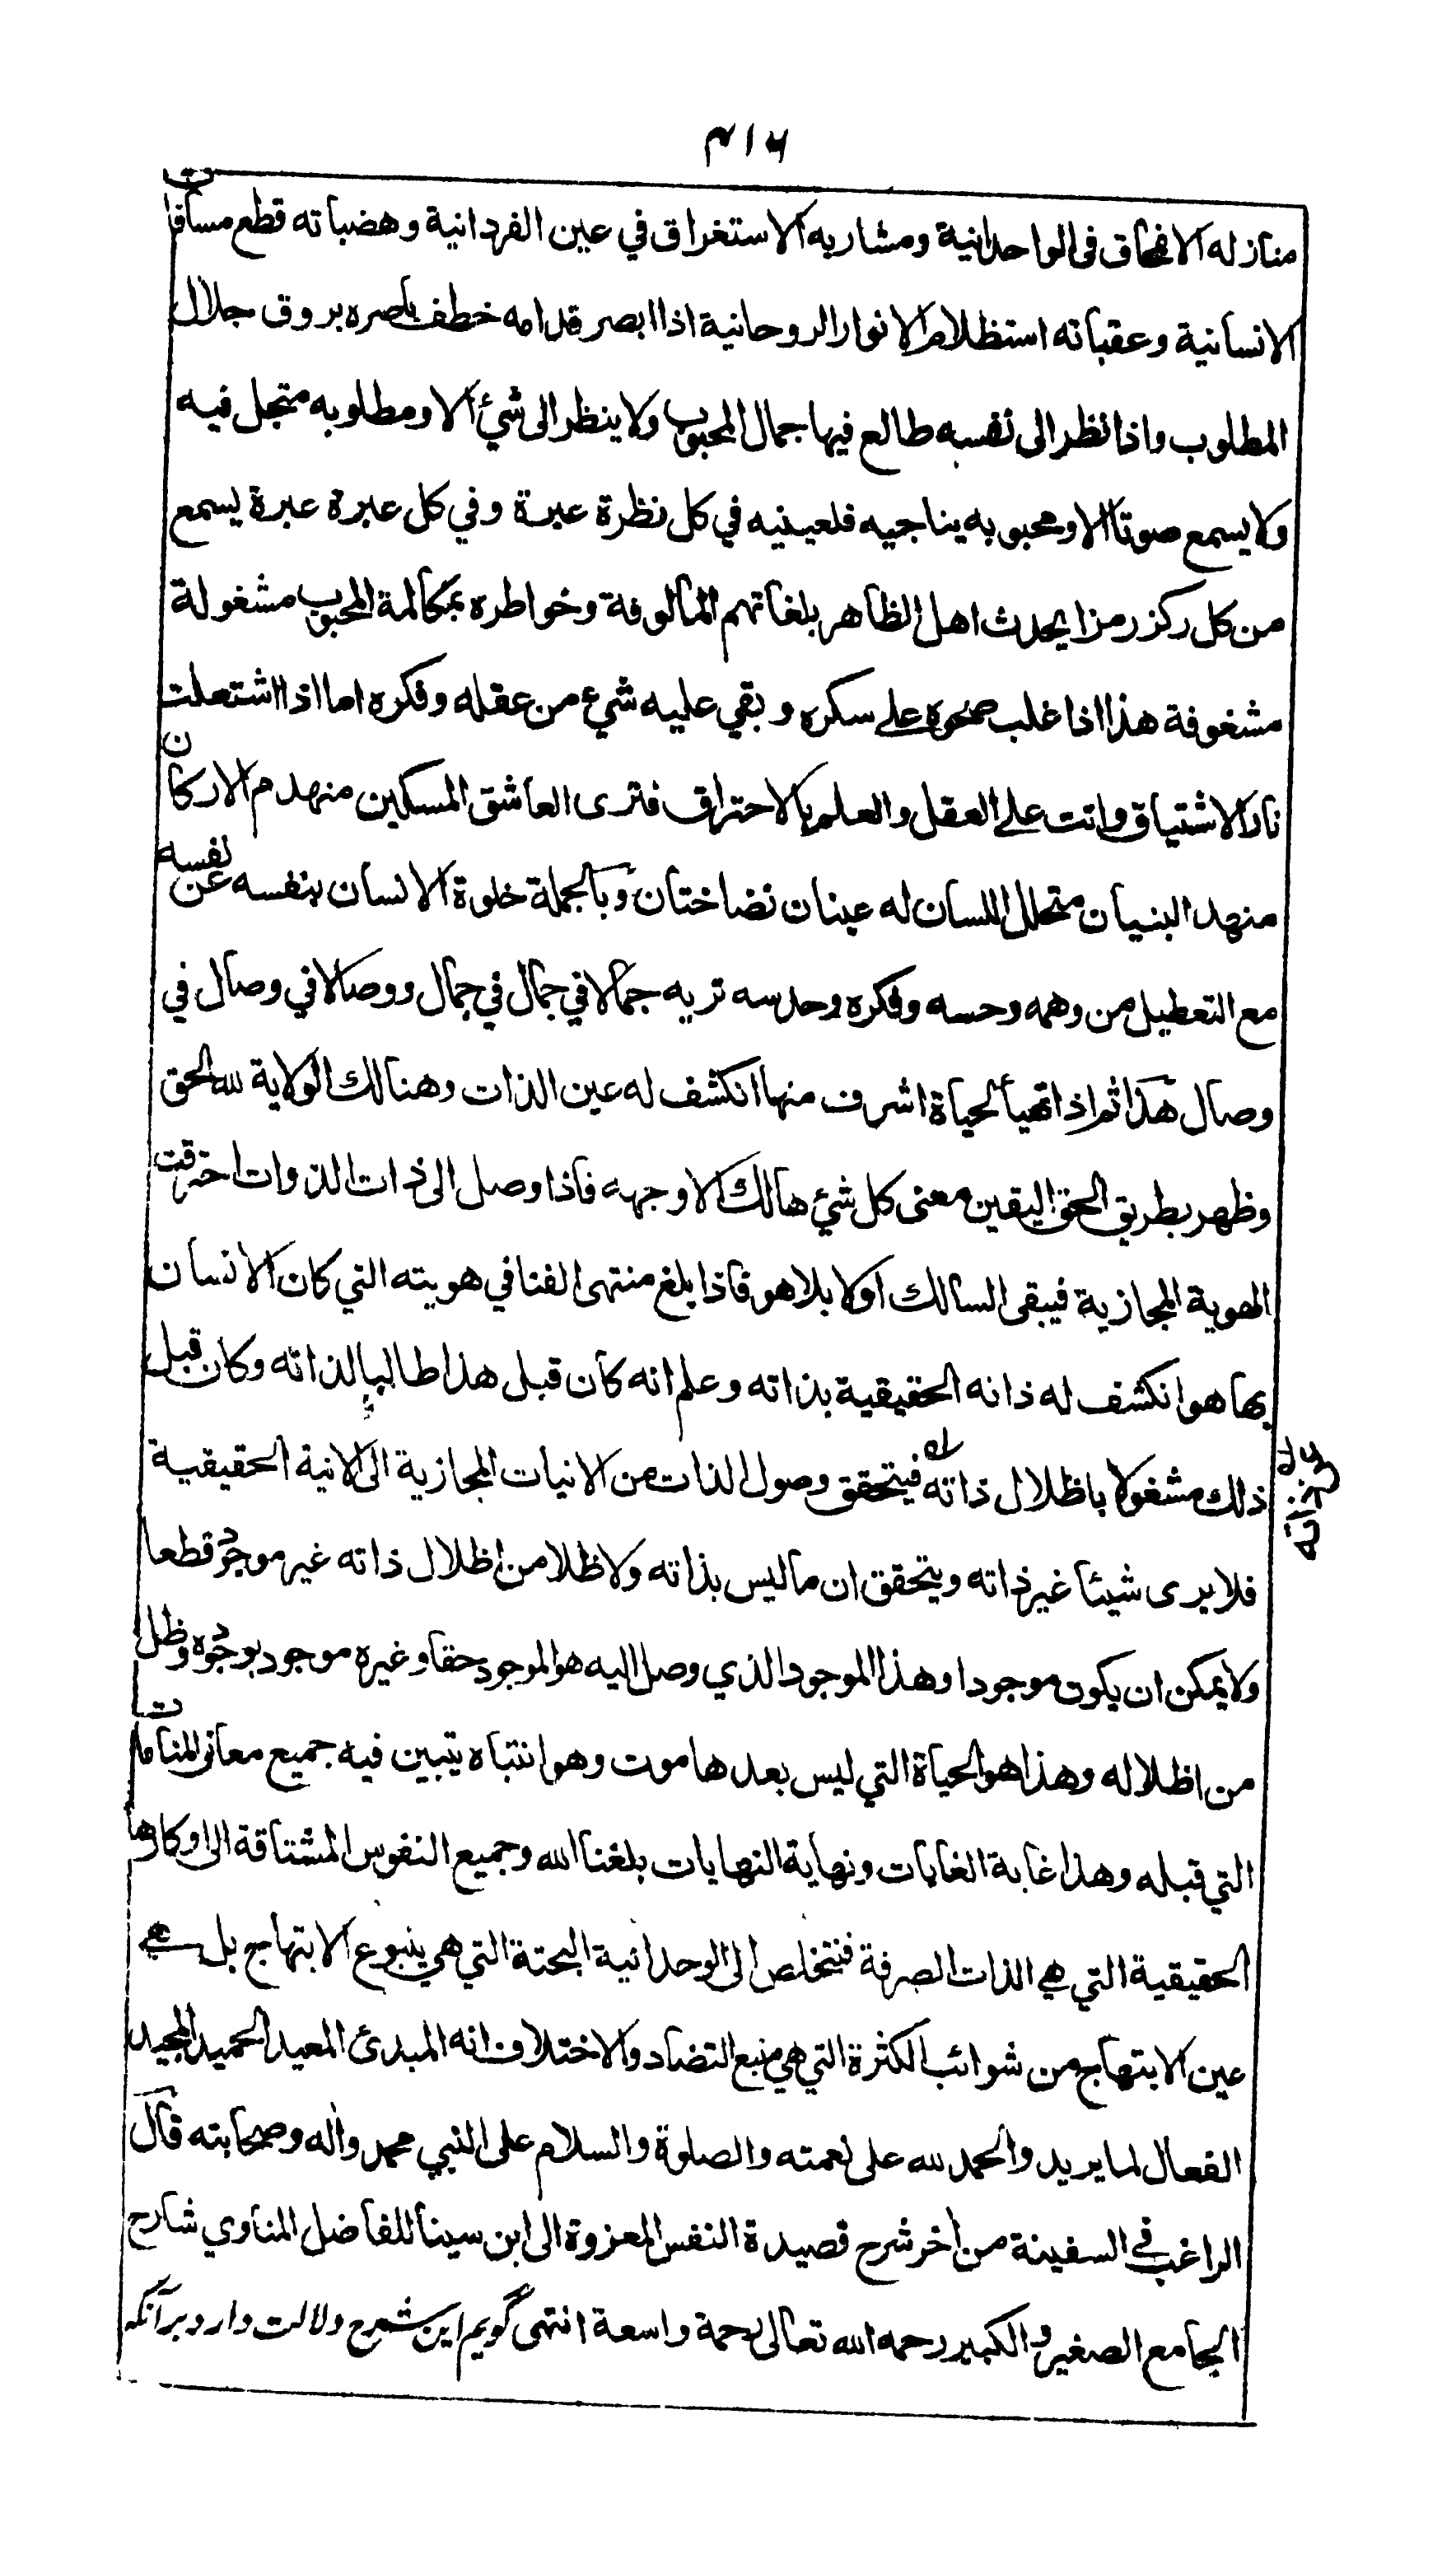 ۳۱۶
منازله الانمحاق فى الواحدانية ومشاربه الاستغراق في عين الفردانية وهضباته قطع مسافات
الانسانية وعقباته استظلام الانوار الروحانية اذا ابصر قدامه خطف باصره بروق جلال
المطلوب واذا نظر الى نفسه طالع فيها جمال المحبوب ولا ينظر الى شيء الا ومطلوبه متجل فيه
ولا يسمع صوتا الا ومحبوبه يناجيه فلعينيه في كل نظرة عبرة وفي كل عبرة عبرة يسمع
من كل ركز رمزا يحدث اهل الظاهر بلغاتهم المالوفة وخواطره بمكالمة المحبوب مشغولة
مشغوفة هذا اذا غلب صحوه على سكره و بقي عليه شيء من عقله وفكره اما اذا اشتعلت
نار الاشتياق واتت على العقل والعلم بالاحتراق فترى العاشق المسكين منهدم الاركان
منهد البنيان متحلل اللسان له عينان نضاختان وبالجملة خلوة الانسان بنفسه عن نفسه
مع التعطيل من وهمه وحسه وفكره وحدسه تريه جمالا في جمال في جمال ووصالا في وصال في
وصال هكذا ثم اذا تهيأ لحياة اشرف منها انكشف له عين الذات وهنالك الولاية لله الحق
وظهر بطريق الحق اليقين معنى كل شيء هالك الا وجهه فاذا وصل الى ذات الذوات احترقت
الهوية المجازية فيبقى السالك اولا بلا هو فاذا بلغ منتهى الفنا في هويته التي كان الانسان
بها هو انكشف له ذاته الحقيقية بذاته وعلم انه كان قبل هذا طالبا لذاته وكان قبل
ذلك مشغولا باظلال ذاته فيتحقق وصول الذات من الانيات المجازية الى الانية الحقيقية
فلا يرى شيئا غير ذاته ويتحقق ان ما ليس بذاته ولا ظلا من اظلال ذاته غير موجود قطعا
ولا يمكن ان يكون موجودا وهذا الموجود الذي وصل اليه هو الموجود حقا وغيره موجود بوجوده وظل
من اظلاله وهذا هو الحياة التي ليس بعدها موت وهو انتباه يتبين فيه جميع معاني المنامات
التي قبله وهذا غاية الغايات ونهاية النهايات بلغنا الله وجميع النفوس المشتاقة الى اوكارها
الحقيقية التي هي الذات الصرفة فنتخلص الى الوحدانية البحتة التي هي ينبوع الابتهاج بل هي
عين الابتهاج من شوائب الكثرة التي هي منبع التضاد والاختلاف انه المبدئ المعيد الحميد المجيد
الفعال لما يريد والحمد لله على نعمته والصلوة والسلام على النبي محمد واله وصحابته قال
الراغب في السفينة من أخر شرح قصيدة النفس المعزوة الى ابن سينا للفاضل المناوي شارح
الجامع الصغير و الكبير رحمه الله تعالى رحمة واسعة انتهى گويم اين شرح دلالت دارد بر آنكه